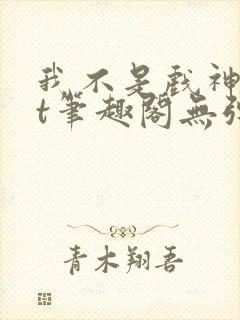 我不是戏神
t筆趣阁無弹
青木翔吾